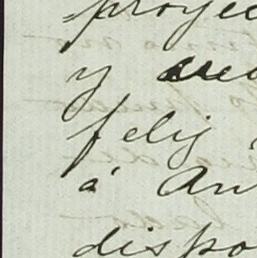 proyec
y cre
feliz
á An
dispo